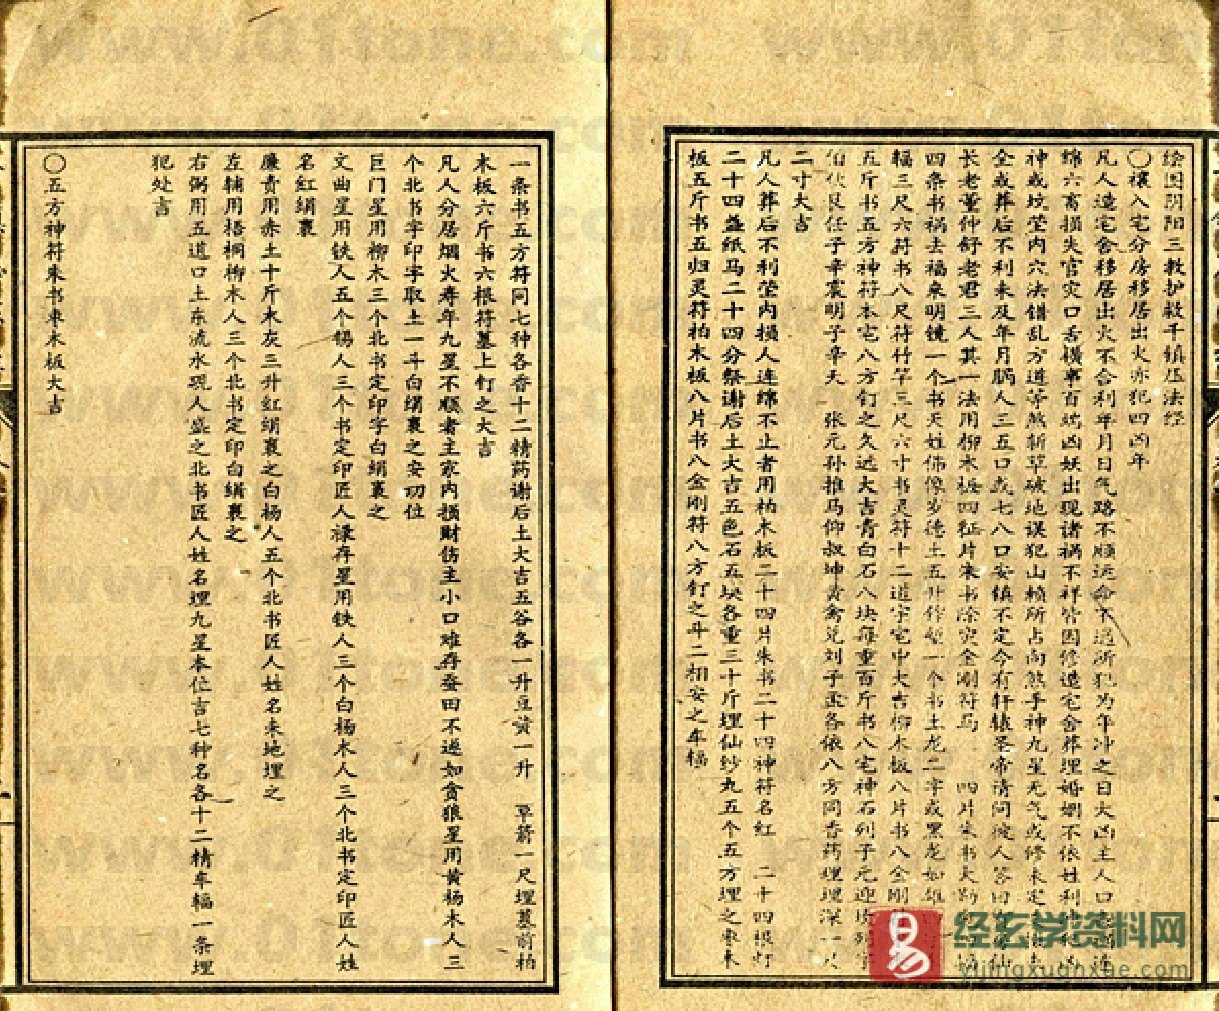 绘图阴阳三教护救千镇压法经
〇禳入宅分房移居出火亦犯四凶年
凡人造宅舍移居出火不合利年月日气路不顺运命不通所犯为年冲之日大凶主人口
绵六畜损失官灾口舌横事百端凶妖出现诸祸不祥皆因修造宅舍葬埋婚姻不依姓利
神或坟茔内穴法错乱方道等煞斩草破地误犯山赖所占向煞手神九星无气或修未定
全或葬后不利未及年月胴人三五口或七八口安镇不定今有轩辕圣帝请问彼人答曰
长老董仲舒老君三人其一法用柳木板四征片朱书除灾全刚符马 四片朱书天
四条书祸去福来明镜一个书天姓佛像岁德土五升作姬一个书土龙二字或黑龙如
辐三尺六符书八尺符竹竿三尺六寸书灵符十二道字宅中大吉柳木板八片书八金刚
五斤书五方神符本宅八方钉之久远大吉青白石八块每重百斤书八宅神石列子元迎
伯伏艮任子辛震明子辛天 张元孙推马仰叔坤贵禽兑刘子孟各依八方同香药埋理深一尺
二寸大吉
凡人葬后不利茔内损人连绵不止者用柏木板二十四片朱书二十四神符名红 二十四根灯
二十四盏纸马二十四分祭谢后土大吉五色石五块各重三十斤埋仙纱丸五个五方埋之枣木
板五斤书五归灵符柏木板八片书八金刚符八方钉之斗二相安之车辐
一条书五方符同七种各香十二精药谢后土大吉五谷各一升豆黄一升 草箭一尺埋墓前柏
木板六斤书六根符墓上钉之大吉
凡人分居烟火寿年九星不顺者主家内损财伤主小口难存蚕田不返如贪狼星用黄杨木人三
个北书字印字取土一斗白绢裹之安功位
巨门星用柳木三个北书定印字白绢裹之
文曲星用铁人五个锡人三个书定印匠人禄存星用铁人三个白杨木人三个北书定印匠人姓
名红绢裹
廉贵用赤土十斤木灰三升红绢裹之白杨人五个北书匠人姓名未地埋之
左辅用梧桐柳木人三个北书定印白绢裹之
右弼用五道口土东流水砚人盛之北书匠人姓名埋九星本位吉七种名各十二精车辐一条埋
犯处吉
〇五方神符朱书枣木板大吉
易
经玄学资料网
yijingxuanxue.com
www.01tone.com